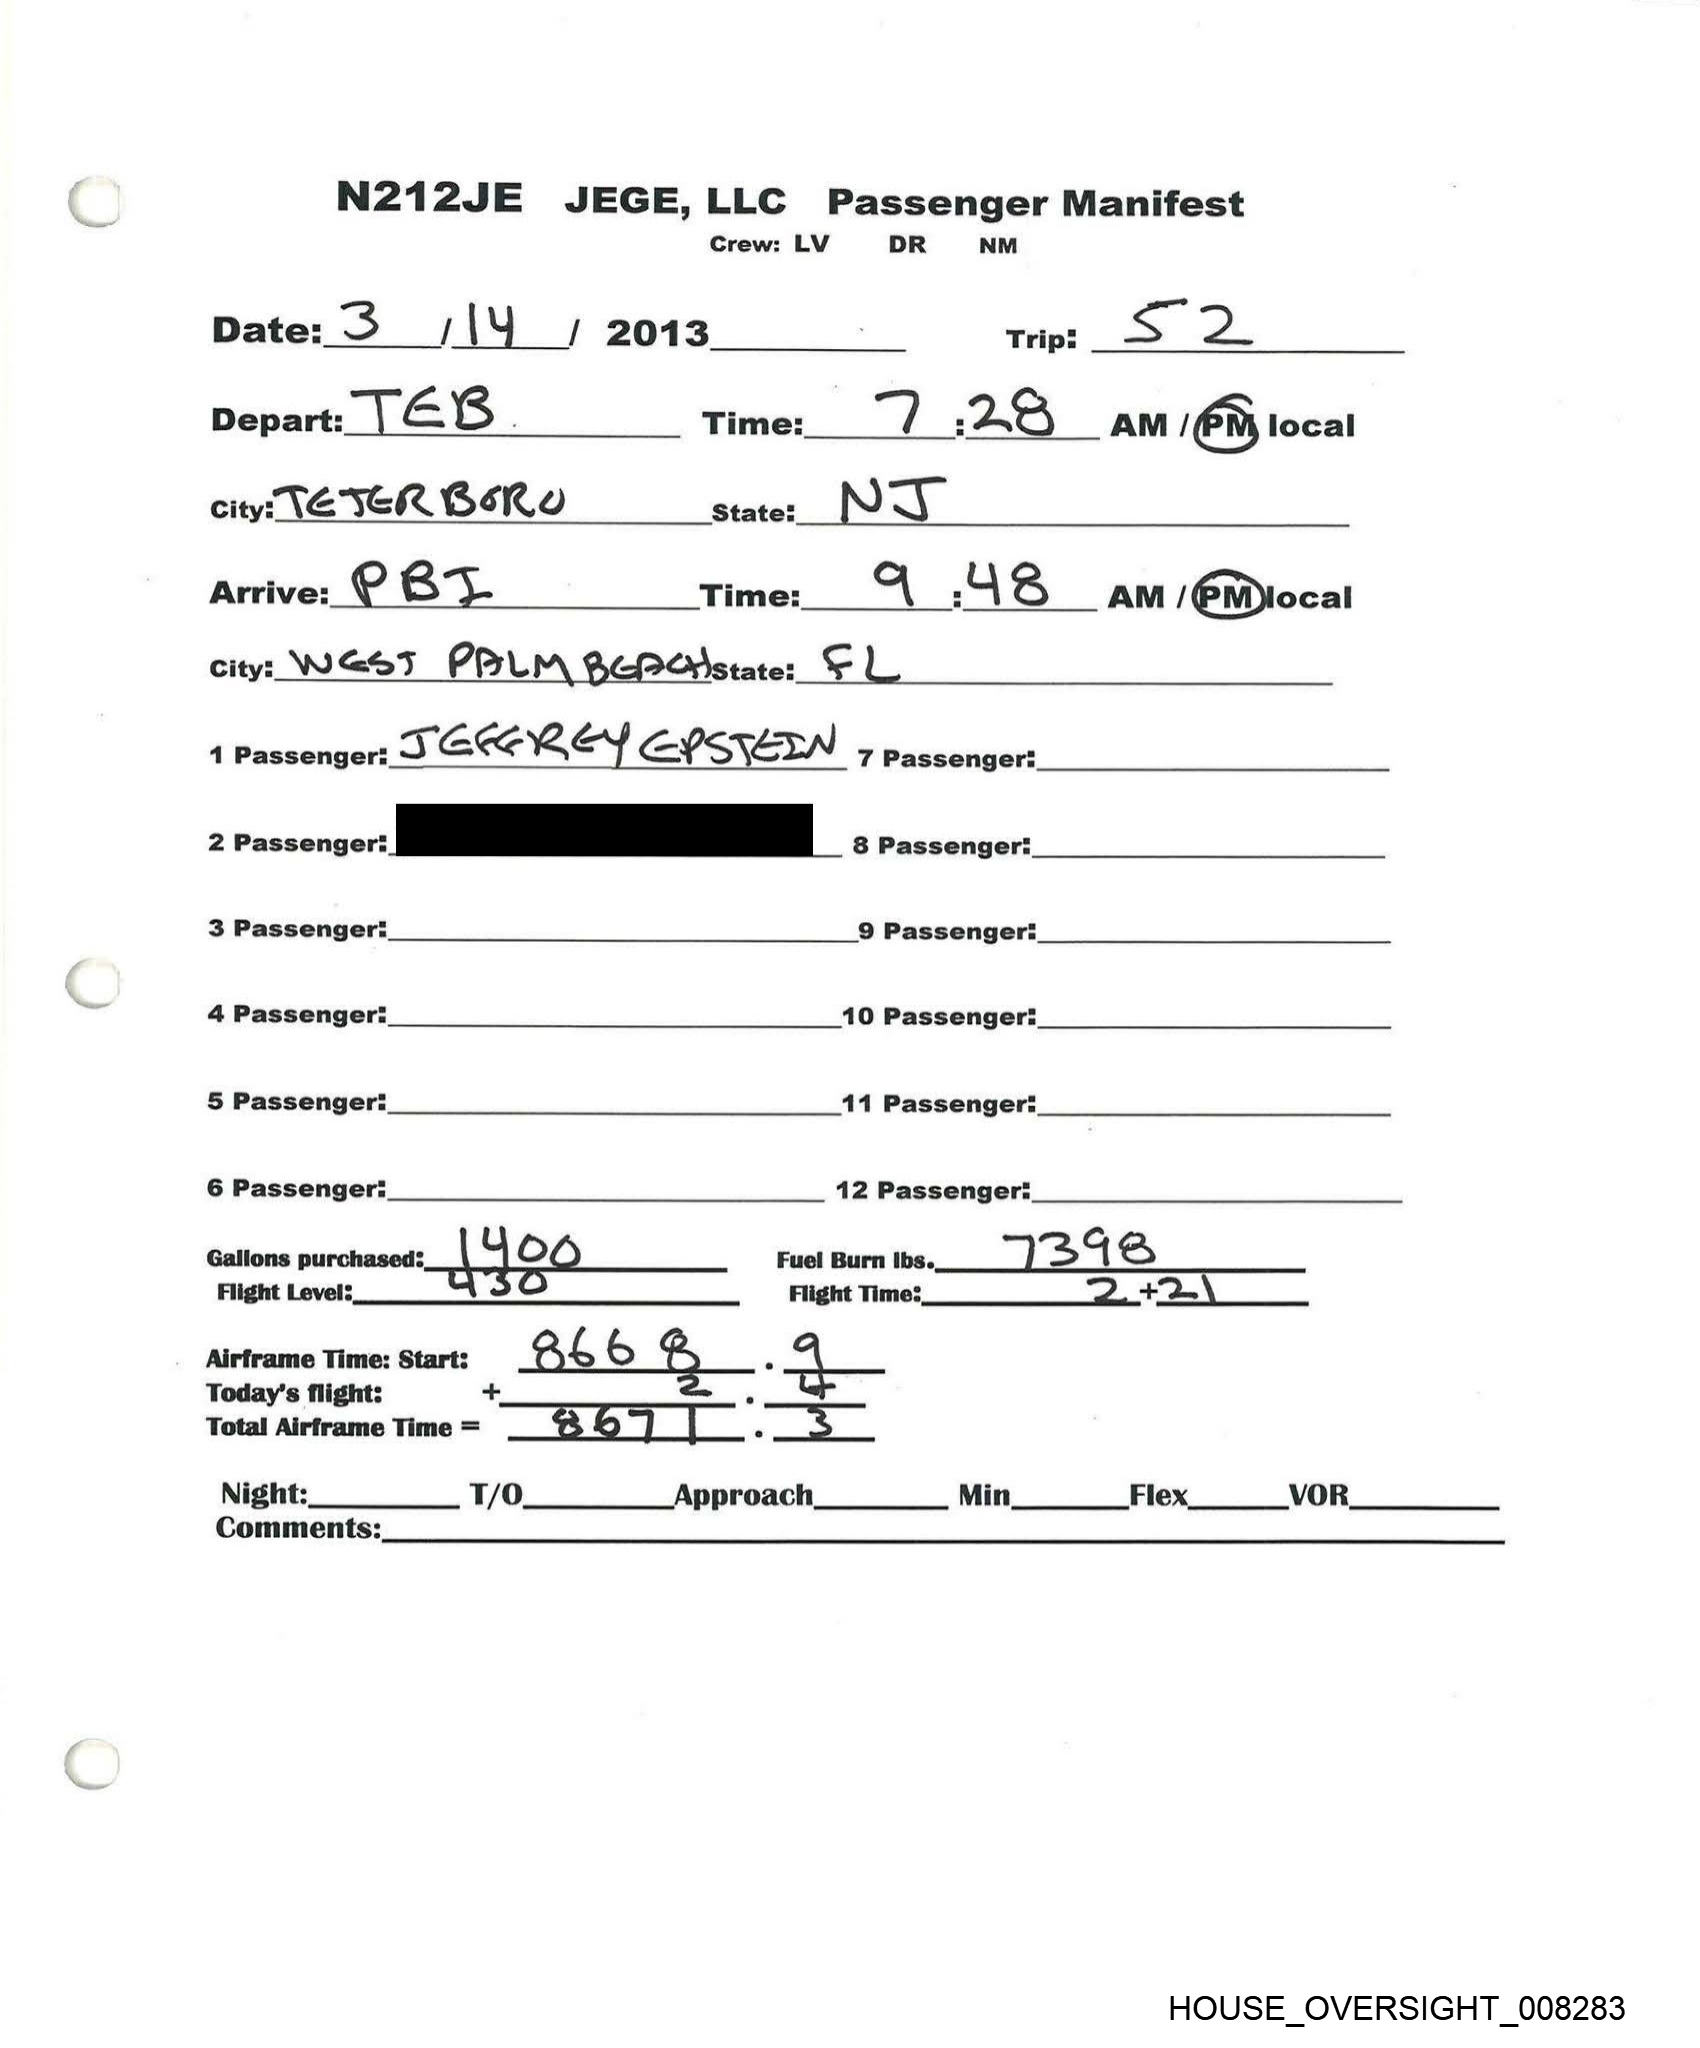 N212JE JEGE, LLC Passenger Manifest
Crew: LV DR NM
Date: 3 / 14 / 2013 Trip: 52
Depart: TEB Time: 7 : 28 AM / PM local
City: TETERBORO State: NJ
Arrive: PBI Time: 9 : 48 AM / PM local
City: WEST PALM BEACH State: FL
1 Passenger: JEFFREY EPSTEIN 7 Passenger:
2 Passenger: 8 Passenger:
3 Passenger: 9 Passenger:
4 Passenger: 10 Passenger:
5 Passenger: 11 Passenger:
6 Passenger: 12 Passenger:
Gallons purchased: 1400 Fuel Burn lbs. 7398
Flight Level: 430 Flight Time: 2 + 21
Airframe Time: Start: 8668 . 9
Today's flight: + 2 . 4
Total Airframe Time = 8671 . 3
Night: T/O Approach Min Flex VOR
Comments:
HOUSE_OVERSIGHT_008283